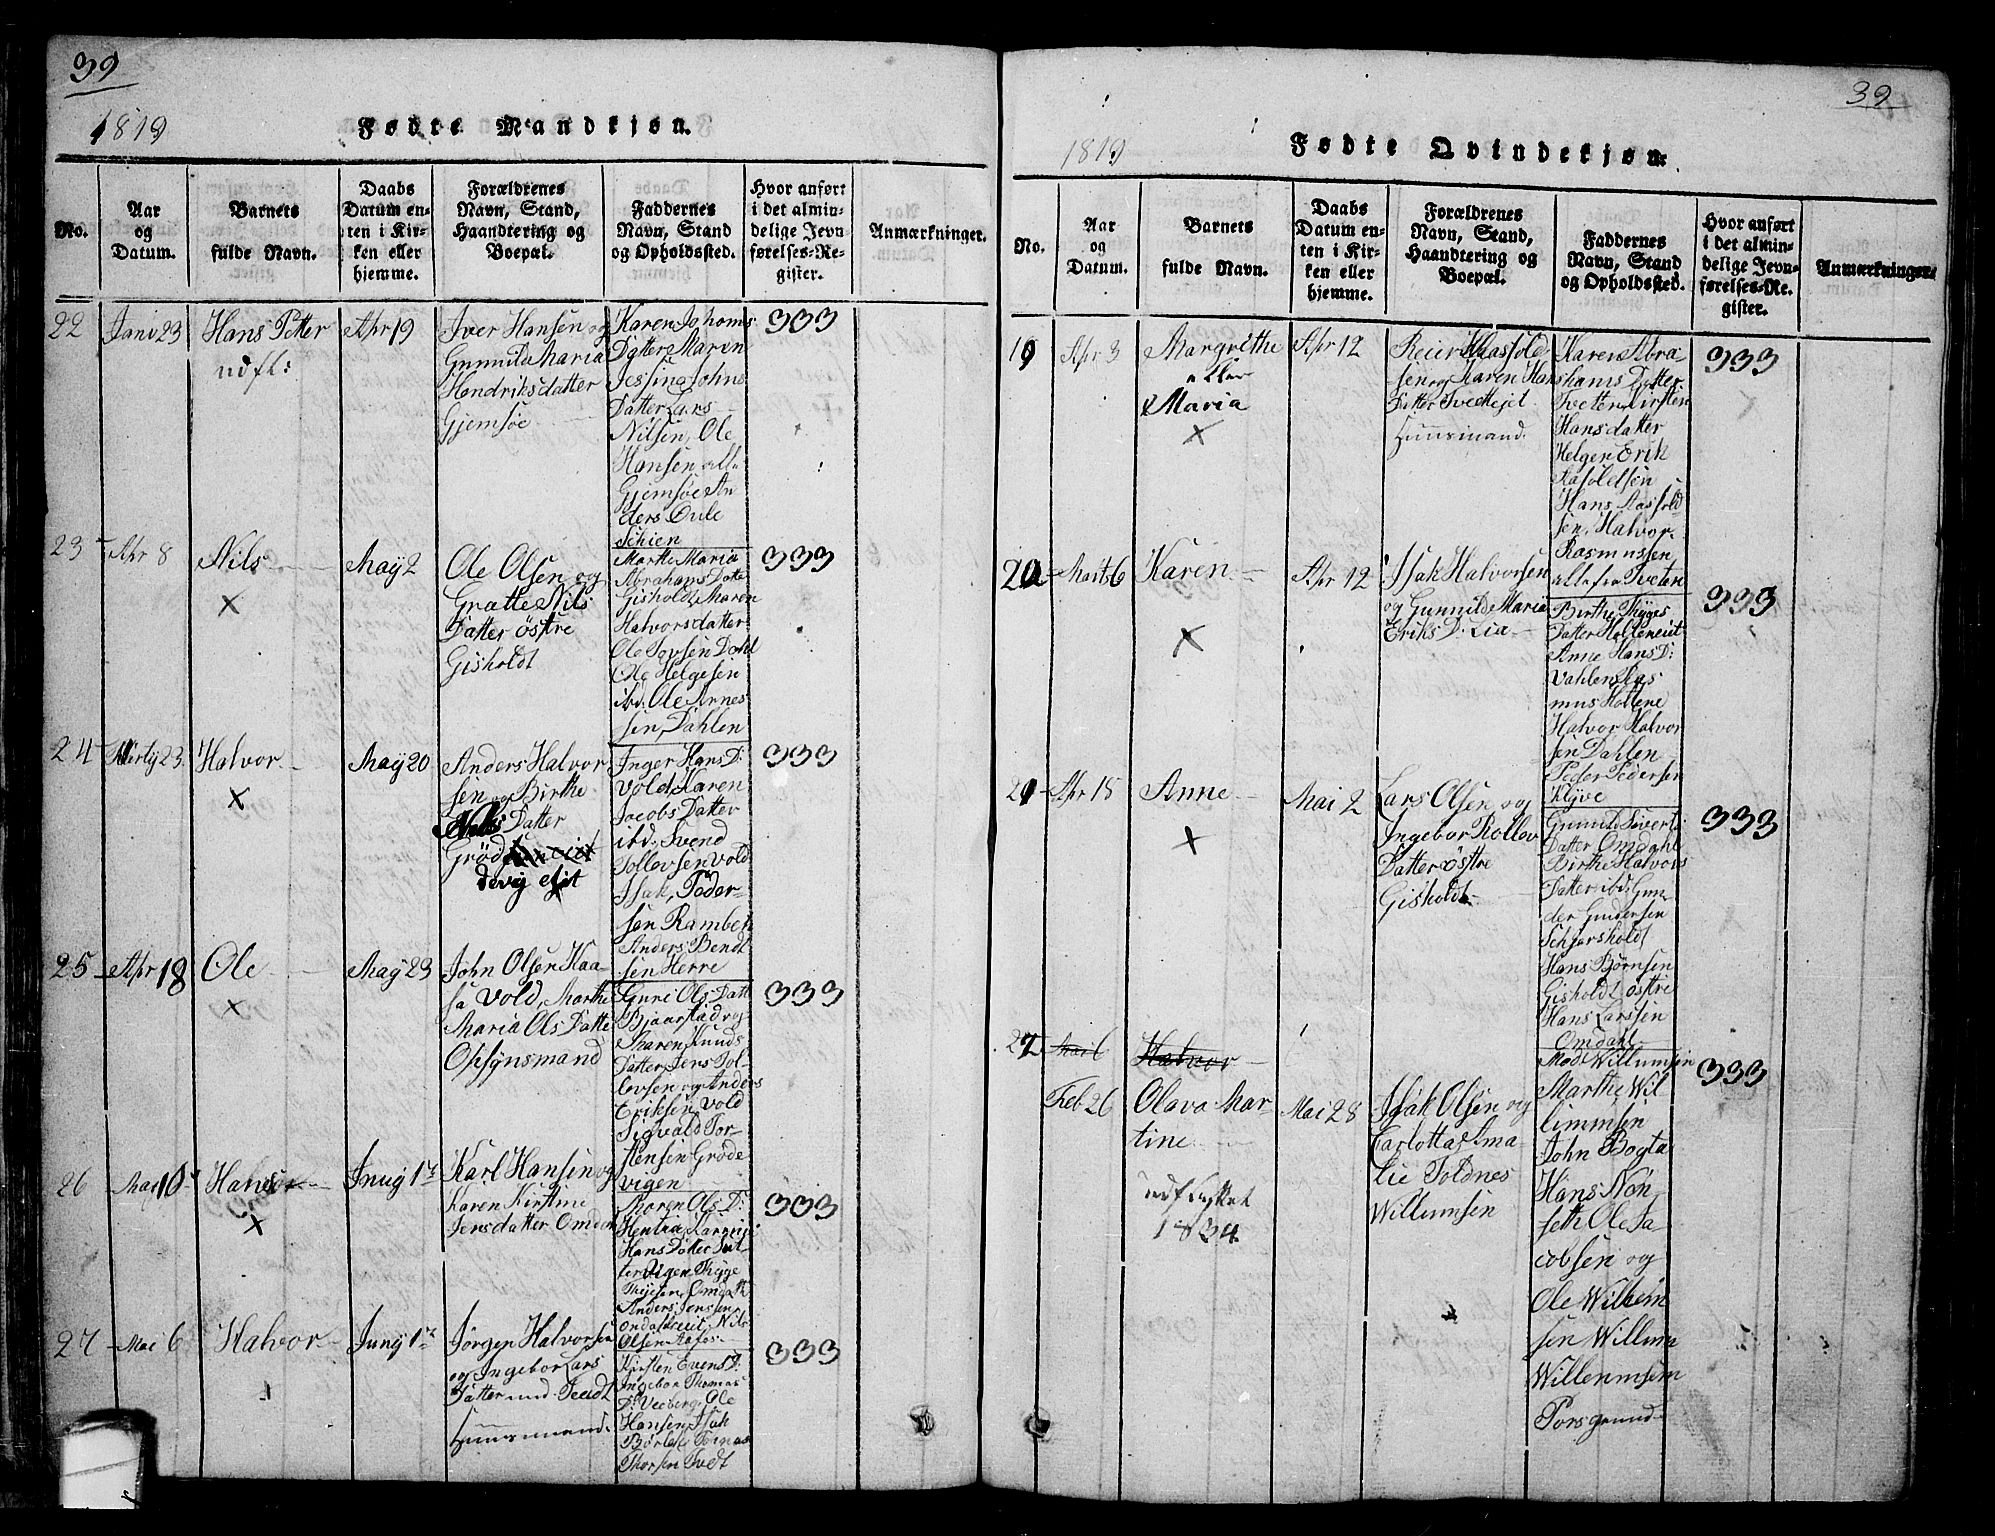 39
1819
Fødte Mandkjøn.
No.
Aar
og
Datum.
Barnets
fulde Navn.
Daabs
Datum en-
ten i Kir-
ken eller
hjemme.
Forældrenes
Navn, Stand,
Haandtering og
Boepæl.
Faddernes
Navn, Stand
og Opholdssted.
Hvor anført
i det almin-
delige Jevn-
førelses-Re-
gister.
Anmærkninger.
22
Jani 23
Hans Petter
udfl:
Apr 19
Iver Hansen og
Gunnild Maria
Hendriksdatter
Gjemsøe
Karen Johanns
Datter Maren
Jessina Johns
Datter Lars
Nilsen, Ole
Hansen alle
Gjemsøe An
ders Oule
Schien
333
23
Apr 8
Nils
May 2
Ole Olsen og
Grætte Nils
Datter østre
Gisholdt
Marthe Maria
Abrahams Datte
Gisholdt, Maren
Halvorsdatter
Ole Jovsen Dahl
Ole Helgesen
ibd: Ole Arnes
sen, Dahlen
333
24
23
Halvor
May 20
Anders Halvor
sen og Birthe
Datter
Inger Hans D:
Vold, Karen
Jacobs Datter
ibd: Svend
Tollevsen Vold
Isak, Peder-
sen Ramberh
Anders Bendt
sen Herre
333
25
Apr 18
Ole
May 23
John Olsen Kaa-
sa Vold, Marthe
Maria Ols Datte
Opsynsmand
Guri Ols Datt
Bjaarstad og
Maren Knuds
Datter, Jens Tol-
levsen og Anders
Eriksen Vold
Sigvald Tor-
stensen Grøde
vigen
333
26
Mai 10
Halvor
Juny 1te
Karl Hansen og
Karen Kirstine
Jensdatter Omdal
Maren Ols D:
Hans Datter
Thygesen, Omdahl
Anders Jensen
Nils
Olsen
333
27
Mai 6
Halvor
Juny 1te
Jørgen Halvorsen
og Ingebor Lars
Datter
Huusmand.
Kirsten Evens D:
Ingebor Thomas
D: Veeberg, Ole
Hansen, Isak
Thorsen Tvedt
333
39
1819
Fødte Qvindekjøn.
No.
Aar
og
Datum.
Barnets
fulde Navn.
Daabs
Datum en-
ten i Kir-
ken eller
hjemme.
Forældrenes
Navn, Stand,
Haandtering og
Boepæl.
Faddernes
Navn, Stand
og Opholdssted.
Hvor anført
i det almin-
delige Jevn-
førelses-Re-
gister.
Anmærkninger.
19
Apr 3
Margrethe
eller
Maria
Apr 12
Reier Aasfold-
sen og Karen Hans
Datter Tvedtejet
Huusmand.
Karen Abra-
hams Datter
Tveten Kirsten
Hansdatter
Helgen Erik
Aasoldsen
Hans Aasfold
sen, Halvor
Rasmussen
alle fra Tveten
333
20
Marts 6
Karen
Apr 12
Isak Halvorsen
og Gunnild Maria
Eriks D: Lia
Birthe Thyges
Datter Holleneiet
Anne Hans D:
Vahlen, Ras
mus Hollene
Halvor Halvor
sen Dahlen
Peder Pedersen
Klyve
333
21
Apr 15
Anne
Mai 2
Lars Olsen og
Ingebor Rollev
Datter østre
Gisholdt
Gunnild Siverts
Datter Omdahl
Birthe Halvors
Datter ibd: Gun
der Gundersen
Schjarsholdt
Hans Børnsen
Gisholdt østre
Hans Larsen
Omdahl
333
22
Halvor
Feb 26
Olava Mar-
tine
udflyttet
1834
Mai 28
Isak Olsen og
Carlotta Ama
lie Toldnes
Willumsen
Mod. Willumsen
Marthe Wil
limmsen
John Bogta
Hans Non
seth Ole Ja
cobsen og
Ole Wilhem
sen Willum
Willemmsem
Porsgrund
333